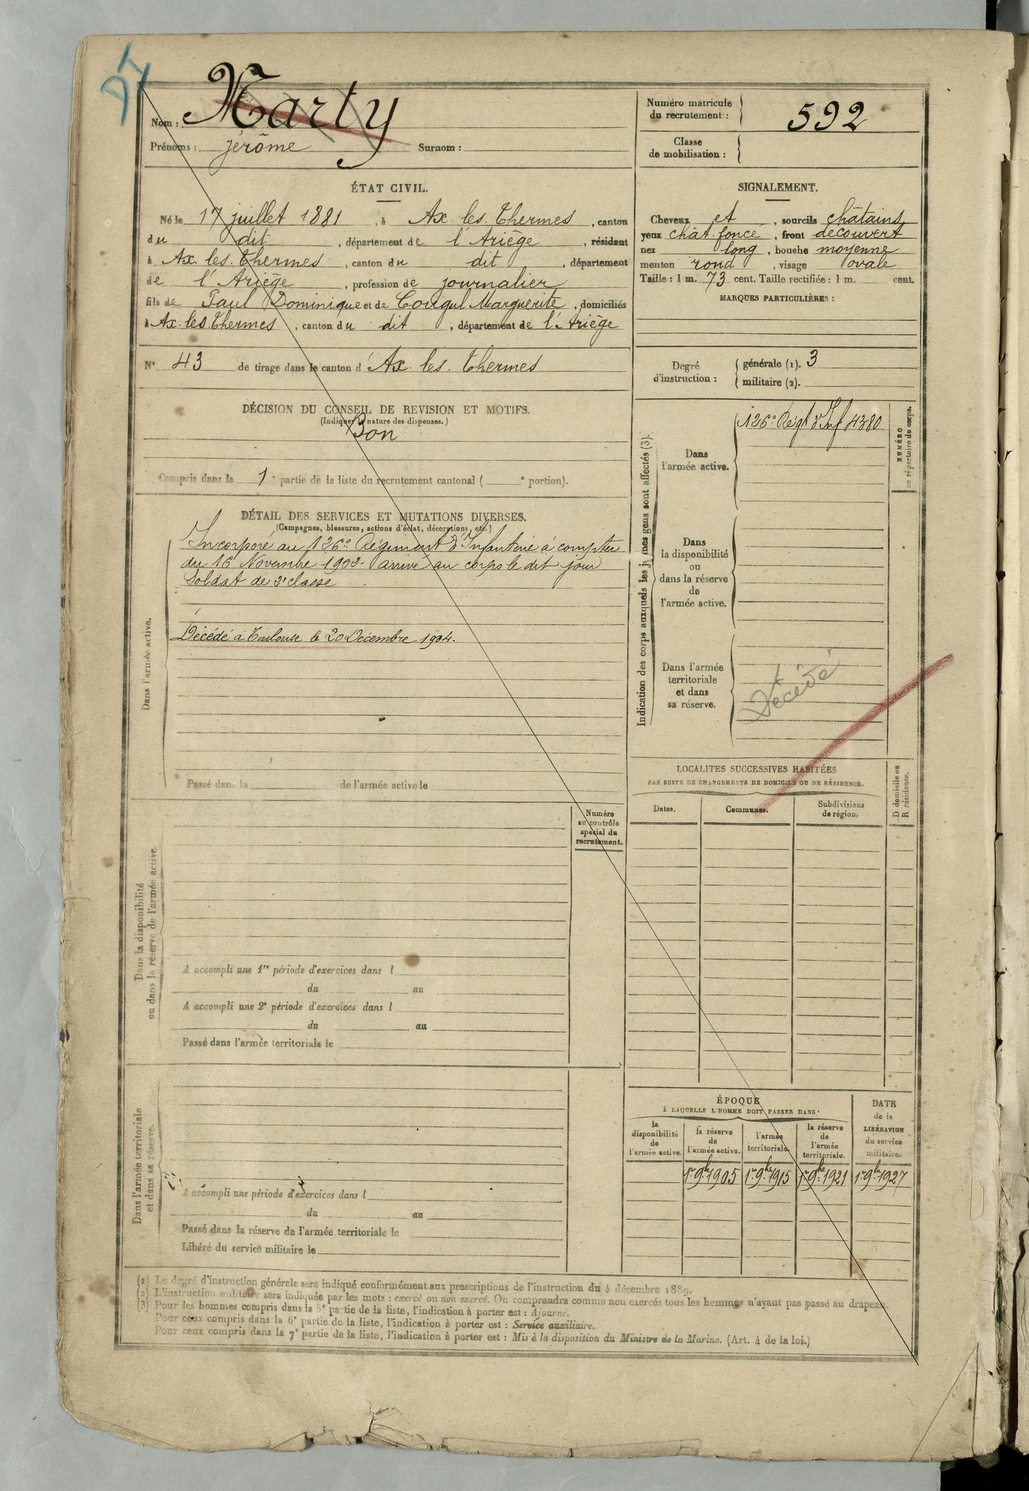 Nom : Marty
Prénoms : Jérôme Surnom :
Numéro matricule
du recrutement : 592
Classe
de mobilisation :
ÉTAT CIVIL.
Né le 17 juillet 1881, à Ax les Thermes, canton
du dit, département de l'Ariège, résidant
à Ax les Thermes, canton du dit, département
de l'Ariège, profession de journalier
fils de Paul Dominique et de Marguerite, domiciliés
à Ax les Thermes, canton du dit, département de l'Ariège
N° 43 de tirage dans le canton d'Ax les Thermes
SIGNALEMENT.
Cheveux et, sourcils châtains
yeux chât foncé, front découvert
nez long, bouche moyenne
menton rond, visage ovale
Taille : 1 m. 73 cent. Taille rectifiée : 1 m. cent.
MARQUES PARTICULIÈRES :
Degré
d'instruction :
générale (1). 3
militaire (2).
DÉCISION DU CONSEIL DE REVISION ET MOTIFS.
(Indiquer nature des dispenses.)
Bon
Compris dans la 1e partie de la liste du recrutement cantonal ( e portion).
DÉTAIL DES SERVICES ET MUTATIONS DIVERSES.
(Campagnes, blessures, actions d'éclat, décorations, etc.)
Dans l'armée active.
Incorporé au 126e Régiment d'Infanterie à compter
du 16 Novembre 1902 arrivé au corps le dit jour
Soldat de 2e classe
Décédé à Toulouse le 20 Décembre 1904.
Passé dans la de l'armée active le
Indication des corps auxquels les jeunes gens sont affectés (3).
Dans
l'armée active.
126e Régt d'Inf 4380
NUMÉRO
au répertoire du corps.
Dans
la disponibilité
ou
dans la réserve
de
l'armée active.
Dans l'armée
territoriale
et dans
sa réserve.
Décédé
LOCALITÉS SUCCESSIVES HABITÉES
PAR SUITE DE CHANGEMENTS DE DOMICILE OU DE RÉSIDENCE.
Dates. Communes. Subdivisions
de région.
D domicile ou
R résidence.
Dans la disponibilité
ou dans la réserve de l'armée active.
Numéro
au contrôle
spécial du
recrutement.
A accompli une 1re période d'exercices dans l
du au
A accompli une 2e période d'exercices dans l
du au
Passé dans l'armée territoriale le
Dans l'armée territoriale
et dans sa réserve.
A accompli une période d'exercices dans l
du au
Passé dans la réserve de l'armée territoriale le
Libéré du service militaire le
ÉPOQUE
À LAQUELLE L'HOMME DOIT PASSER DANS
la
disponibilité
de
l'armée active.
la réserve
de
l'armée active.
l'armée
territoriale.
la réserve
de
l'armée
territoriale.
DATE
de la
LIBÉRATION
du service
militaire.
1er 9bre 1905 1er 9bre 1915 1er 9bre 1921 1er 9bre 1927
(1) Le degré d'instruction générale sera indiqué conformément aux prescriptions de l'instruction du 4 décembre 1889.
(2) L'instruction militaire sera indiquée par les mots : exercé ou non exercé. On comprendra comme non exercés tous les hommes n'ayant pas passé au drapeau.
(3) Pour les hommes compris dans la 5e partie de la liste, l'indication à porter est : Ajourné.
Pour ceux compris dans la 6e partie de la liste, l'indication à porter est : Service auxiliaire.
Pour ceux compris dans la 7e partie de la liste, l'indication à porter est : Mis à la disposition du Ministre de la Marine. (Art. 4 de la loi.)